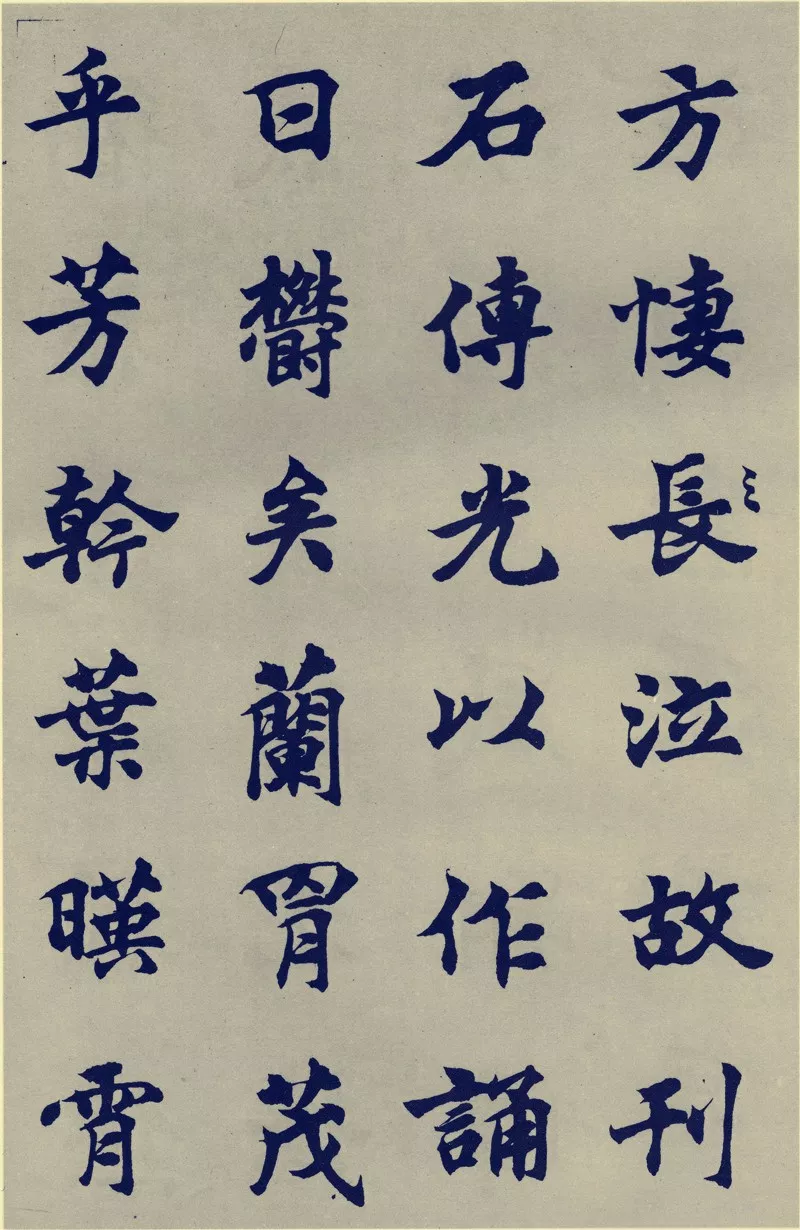 方悽長泣故刊
石傳光以作誦
曰欝矣蘭胄茂
乎芳幹葉暎霄